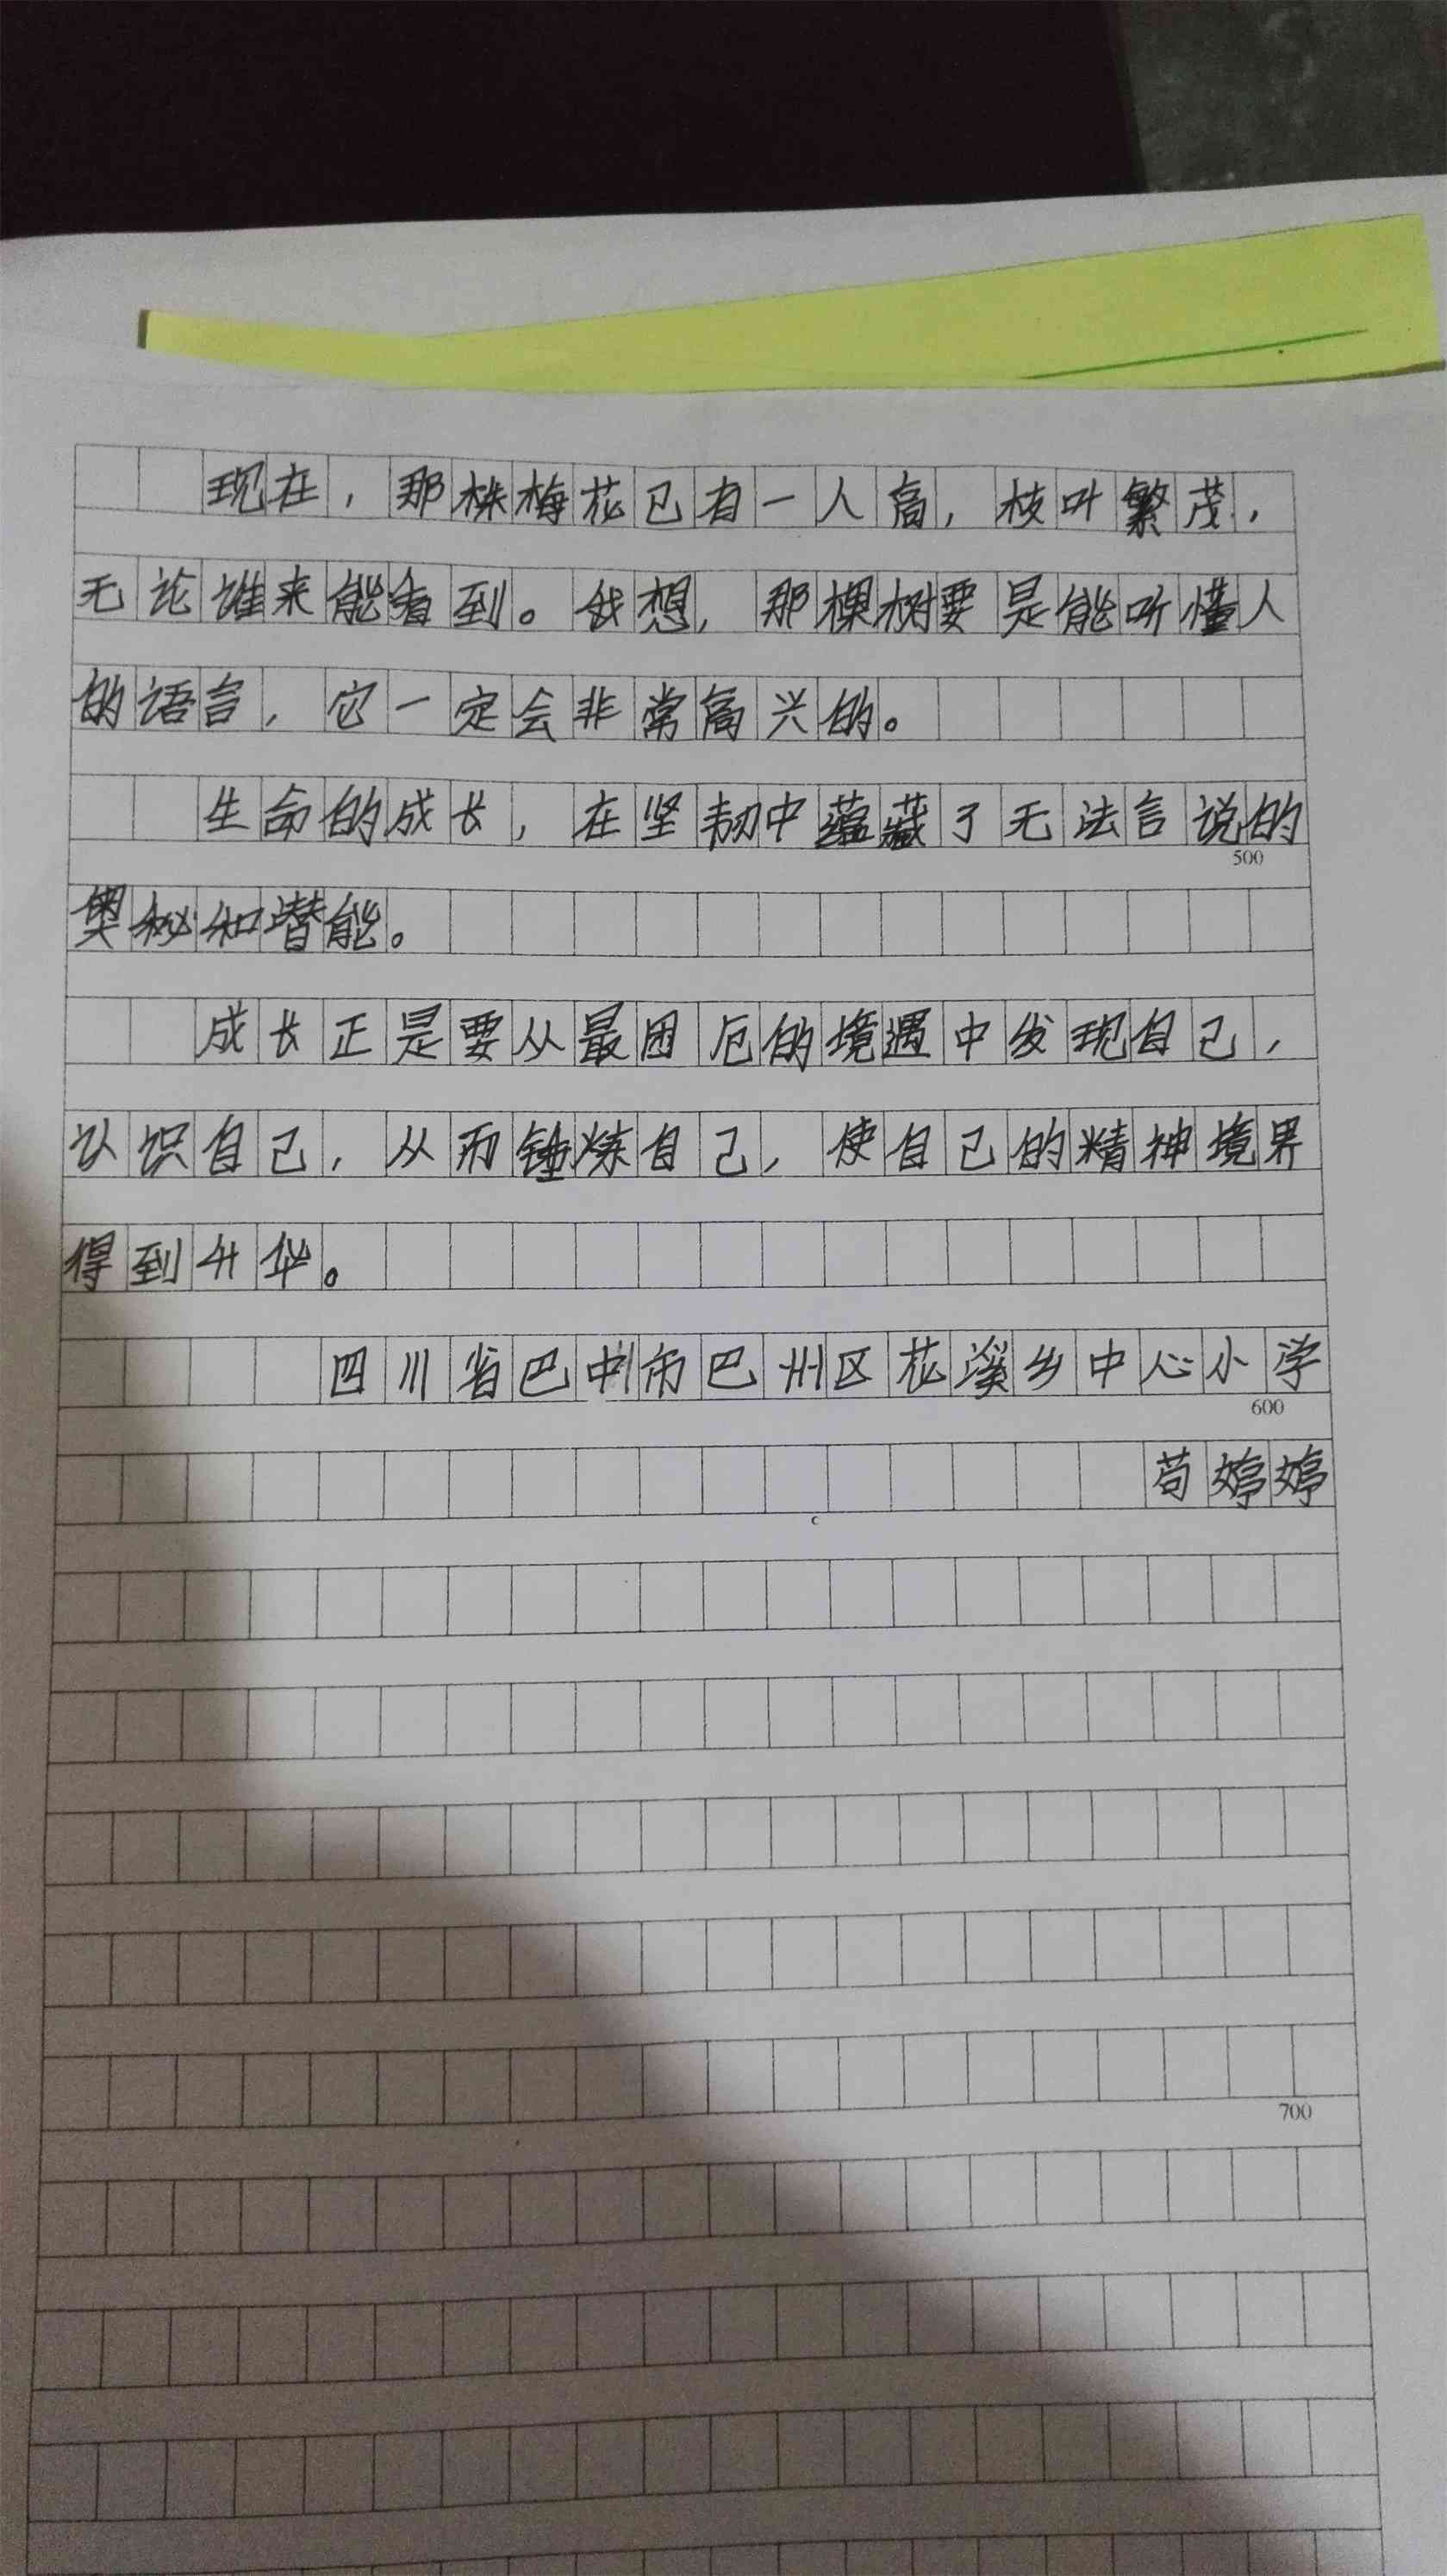 现在，那株梅花已有一人高，枝叶繁茂，
无论谁来能看到。我想，那棵树要是能听懂人
的语言，它一定会非常高兴的。
生命的成长，在坚韧中蕴藏了无法言说的
500
奥秘和潜能。
成长正是要从最困厄的境遇中发现自己，
认识自己，从而锤炼自己，使自己的精神境界
得到升华。
四川省巴中市巴州区花溪乡中心小学
600
苟婷婷
700